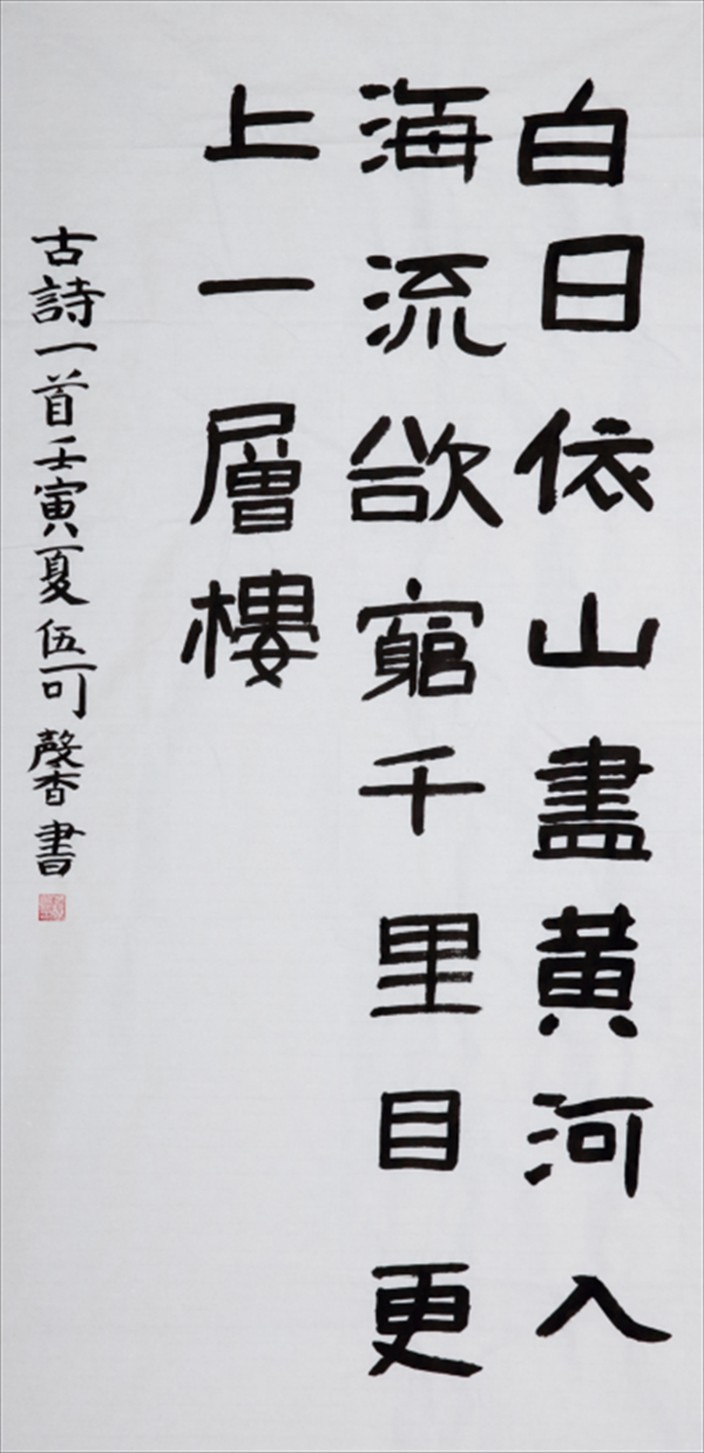 白日依山盡黄河入
海流欲窮千里目更
上一層樓
古詩一首壬寅夏伍可馨書